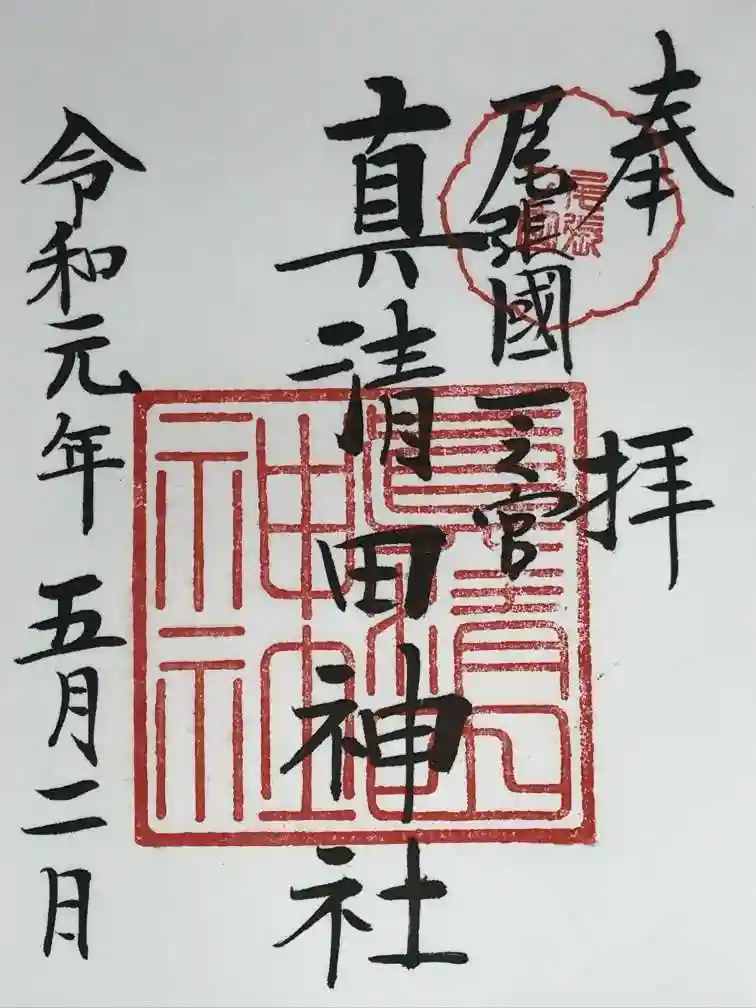 奉拝
尾張國一之宮
真清田神社
令和元年 五月二日
尾張
神社